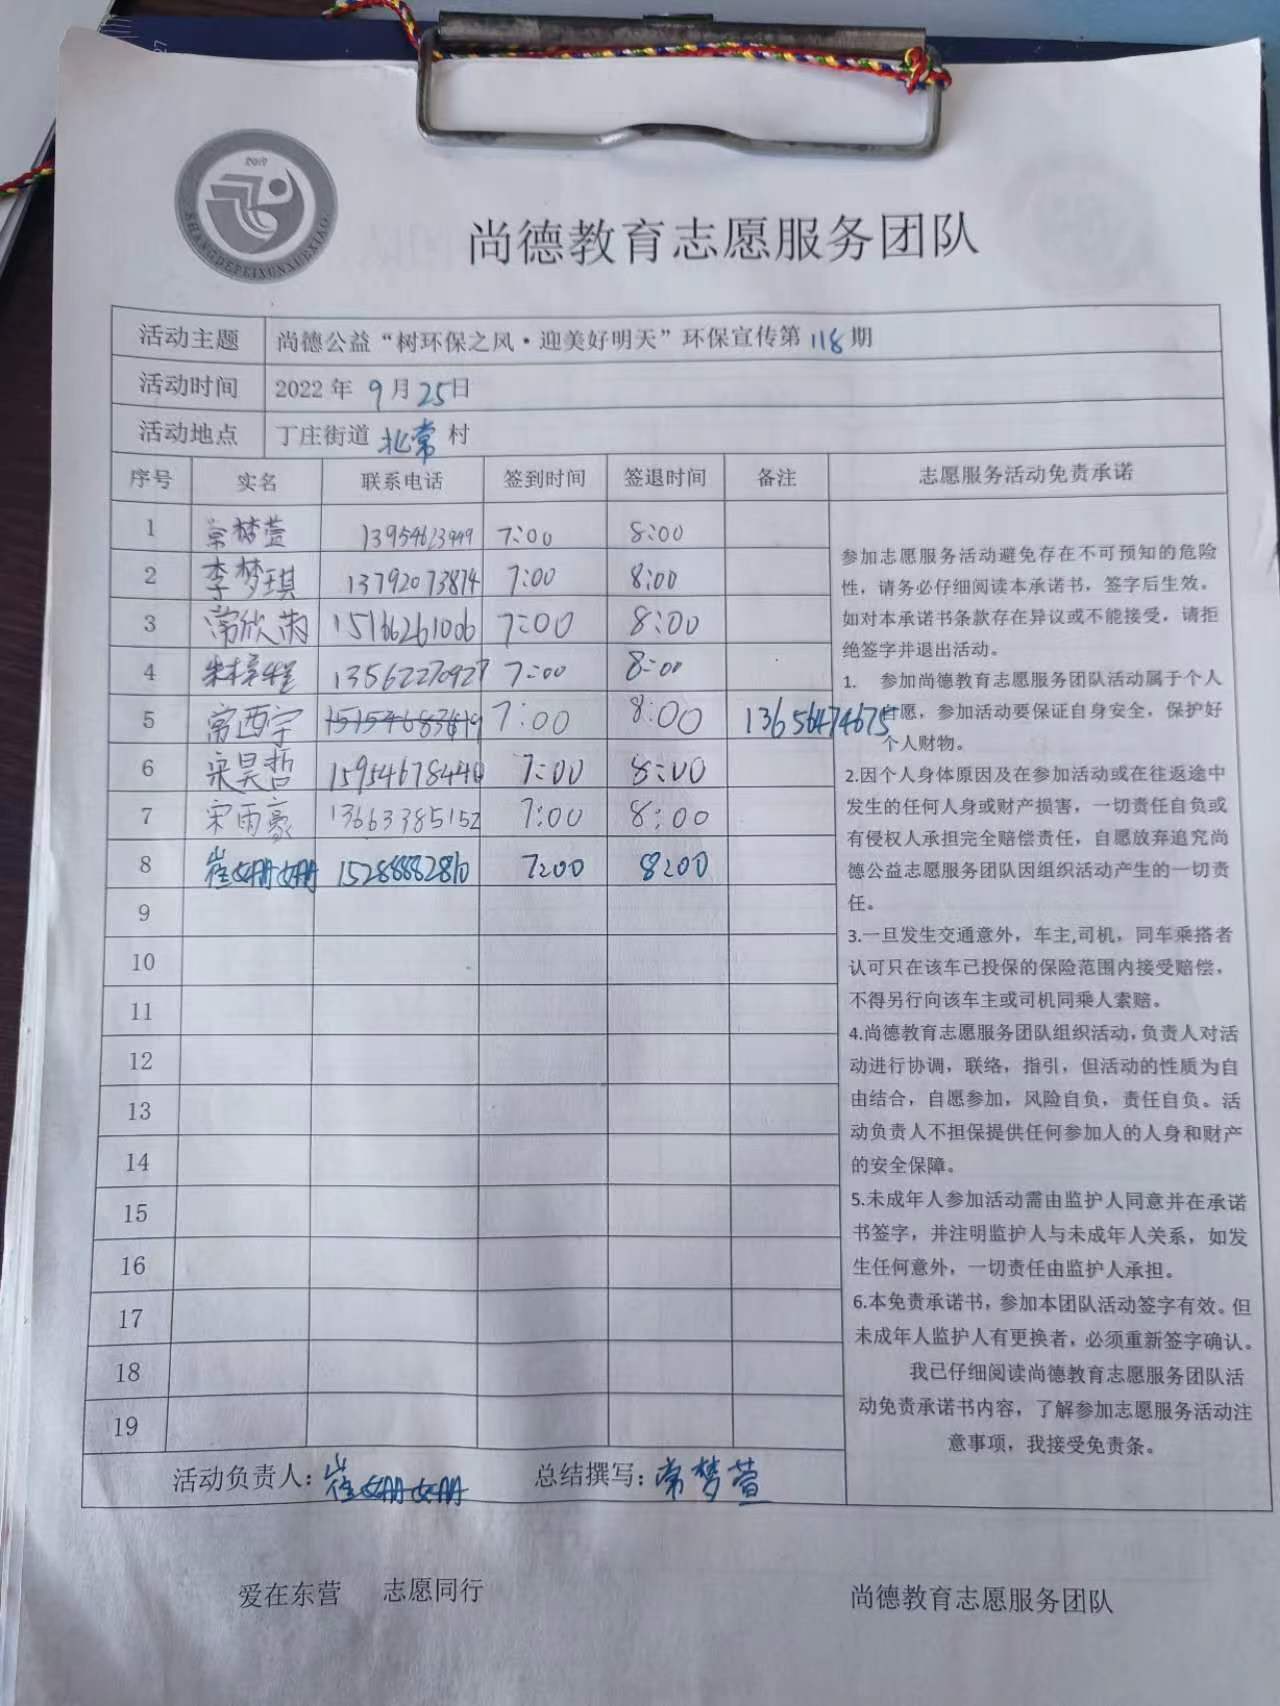 2019
SHANGDEPEIXUNXUEXIAO
尚德教育志愿服务团队
活动主题 尚德公益“树环保之风·迎美好明天”环保宣传第118期
活动时间 2022年 9月25日
活动地点 丁庄街道 北常 村
序号 实名 联系电话 签到时间 签退时间 备注 志愿服务活动免责承诺
1 常梦萱 13954623949 7:00 8:00
2 李梦琪 13792073874 7:00 8:00
3 常欣 15166261006 7:00 8:00
4 13562270927 7:00 8:00
5 常西宁 7:00 8:00 13656474675
6 宋昊哲 15954678440 7:00 8:00
7 宋雨豪 13663385152 7:00 8:00
8 崔姗姗 15288882810 7:00 8:00
9
10
11
12
13
14
15
16
17
18
19
参加志愿服务活动避免存在不可预知的危险
性，请务必仔细阅读本承诺书，签字后生效。
如对本承诺书条款存在异议或不能接受，请拒
绝签字并退出活动。
1. 参加尚德教育志愿服务团队活动属于个人
自愿，参加活动要保证自身安全，保护好
个人财物。
2.因个人身体原因及在参加活动或在往返途中
发生的任何人身或财产损害，一切责任自负或
有侵权人承担完全赔偿责任，自愿放弃追究尚
德公益志愿服务团队因组织活动产生的一切责
任。
3.一旦发生交通意外，车主,司机，同车乘搭者
认可只在该车已投保的保险范围内接受赔偿，
不得另行向该车主或司机同乘人索赔。
4.尚德教育志愿服务团队组织活动，负责人对活
动进行协调，联络，指引，但活动的性质为自
由结合，自愿参加，风险自负，责任自负。活
动负责人不担保提供任何参加人的人身和财产
的安全保障。
5.未成年人参加活动需由监护人同意并在承诺
书签字，并注明监护人与未成年人关系，如发
生任何意外，一切责任由监护人承担。
6.本免责承诺书，参加本团队活动签字有效。但
未成年人监护人有更换者，必须重新签字确认。
我已仔细阅读尚德教育志愿服务团队活
动免责承诺书内容，了解参加志愿服务活动注
意事项，我接受免责条。
活动负责人：崔姗姗 总结撰写：常梦萱
爱在东营 志愿同行 尚德教育志愿服务团队